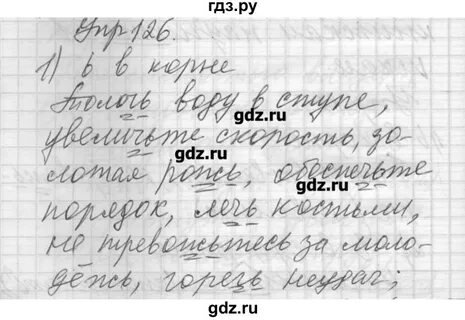 Упр 126.
1) ь в корне
Толочь воду в ступе,
увеличьте скорость, зо-
лотая рожь, обеспечьте
порядок, лечь костьми,
не тревожьтесь за моло-
дёжь, горечь неудач;
gdz.ru
gdz.ru
gdz.ru
gdz.ru
gdz.ru